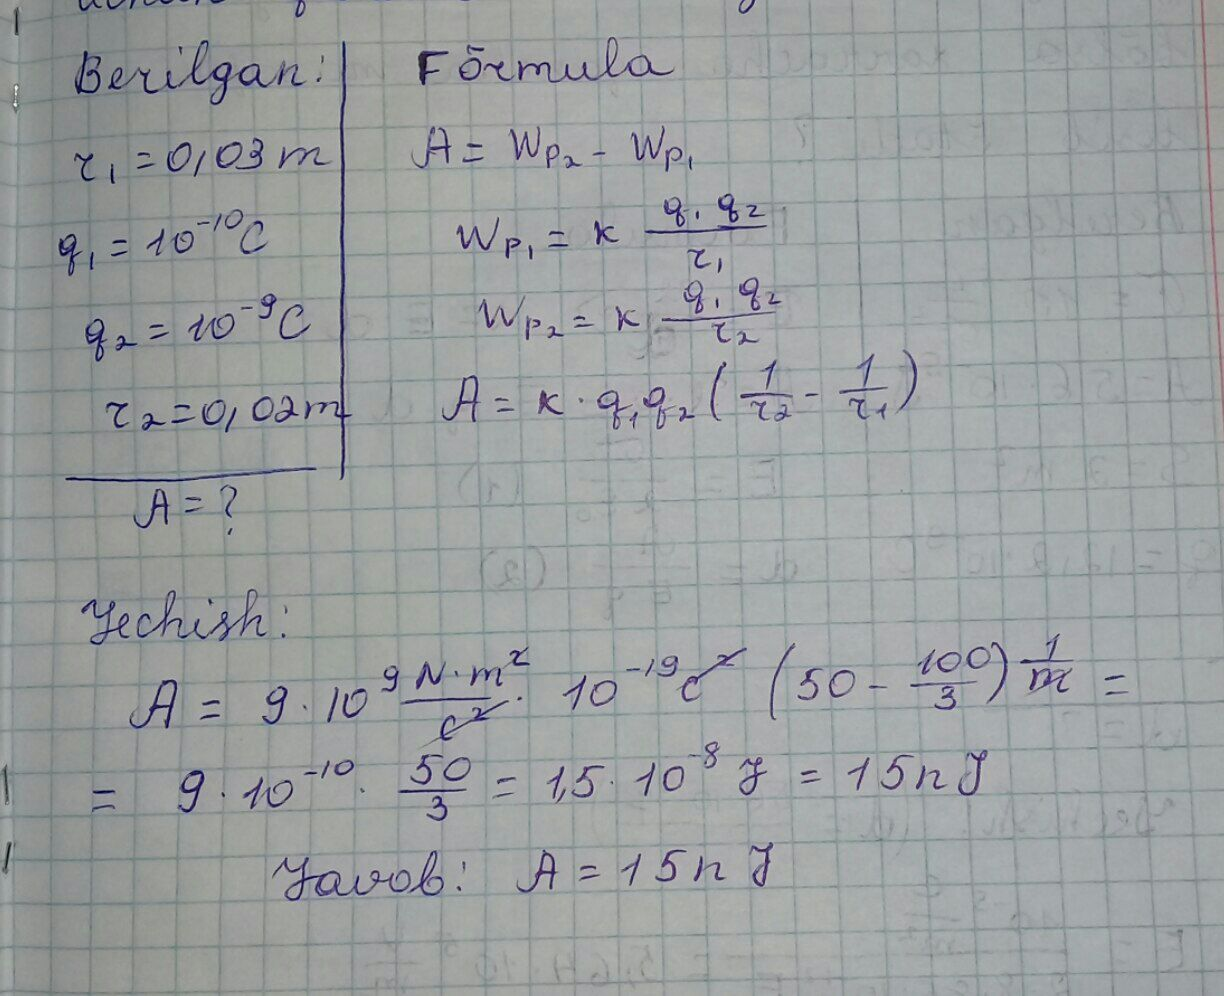 Berilgan:
r₁ = 0,03 m
q₁ = 10⁻¹⁰ C
q₂ = 10⁻⁹ C
r₂ = 0,02 m
A = ?
Fōrmula
A = Wp₂ - Wp₁
Wp₁ = k q₁ q₂ / r₁
Wp₂ = k q₁ q₂ / r₂
A = k · q₁q₂ (1/r₂ - 1/r₁)
Yechish:
A = 9 · 10⁹ N·m²/C² · 10⁻¹⁹ C² (50 - 100/3) 1/m =
= 9 · 10⁻¹⁰ · 50/3 = 1,5 · 10⁻⁸ J = 15 n J
Javob: A = 15 n J